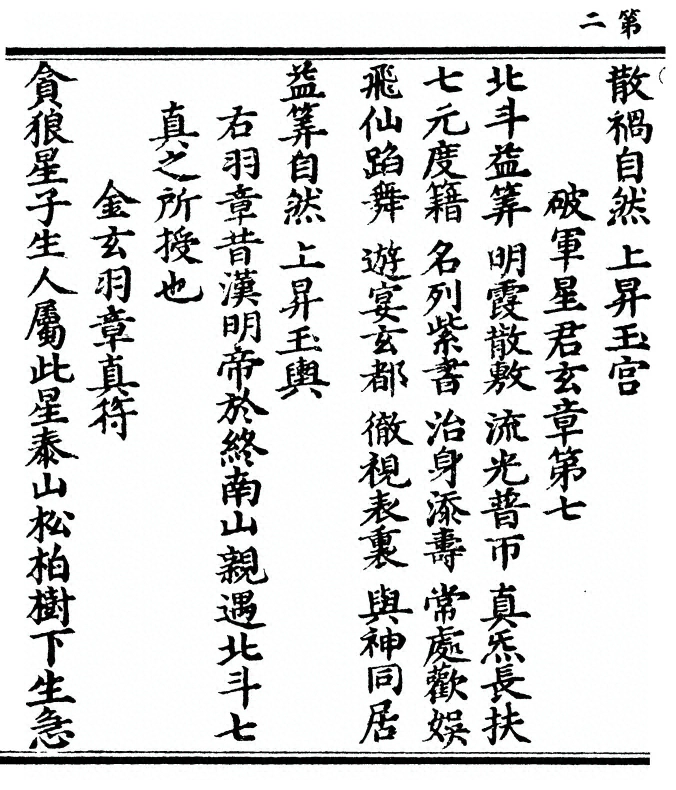 第二
散禍自然 上昇玉宫
破軍星君玄章第七
北斗益筭 明霞散敷 流光普帀 真炁長扶
七元度籍 名列紫書 治身添壽 常處歡娛
飛仙蹈舞 遊宴玄都 徹視表裏 與神同居
益筭自然 上昇玉輿
右羽章昔漢明帝於終南山親遇北斗七
真之所授也
金玄羽章真符
貪狼星子生人屬此星泰山松柏樹下生急